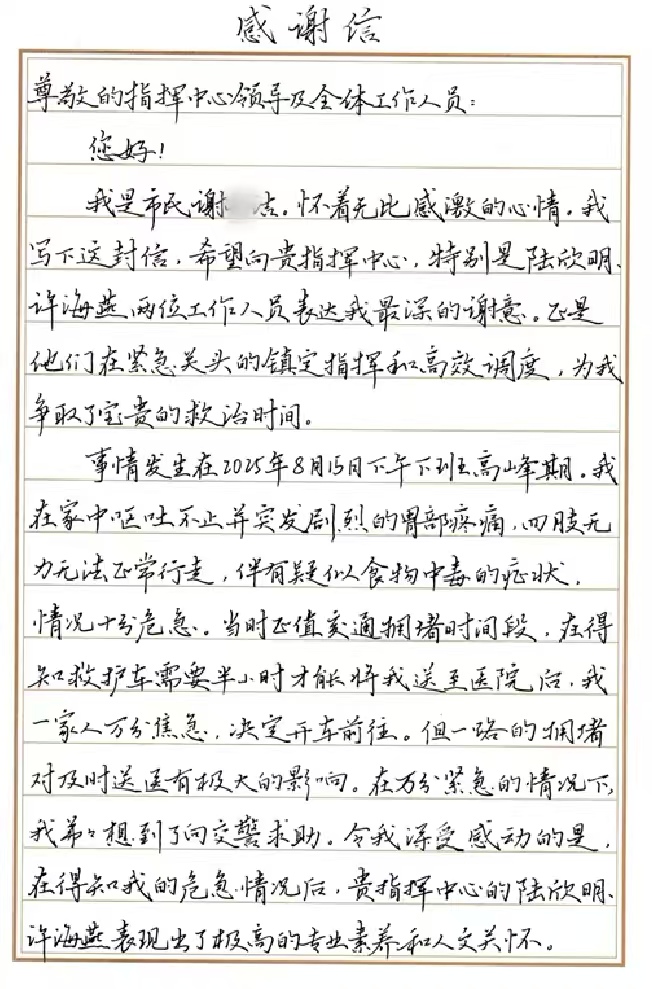 感谢信
尊敬的指挥中心领导及全体工作人员：
您好！
我是市民谢 杰。怀着无比感激的心情，我
写下这封信，希望向贵指挥中心，特别是陆欣明、
许海燕两位工作人员表达我最深的谢意。正是
他们在紧急关头的镇定指挥和高效调度，为我
争取了宝贵的救治时间。
事情发生在2025年8月15日下午下班高峰期。我
在家中呕吐不止并突发剧烈的胃部疼痛，四肢无
力无法正常行走，伴有疑似食物中毒的症状，
情况十分危急。当时正值交通拥堵时间段，在得
知救护车需要半小时才能将我送至医院后，我
一家人万分焦急，决定开车前往。但一路的拥堵
对及时送医有极大的影响。在万分紧急的情况下，
我弟弟想到了向交警求助。令我深受感动的是，
在得知我的危急情况后，贵指挥中心的陆欣明、
许海燕表现出了极高的专业素养和人文关怀。